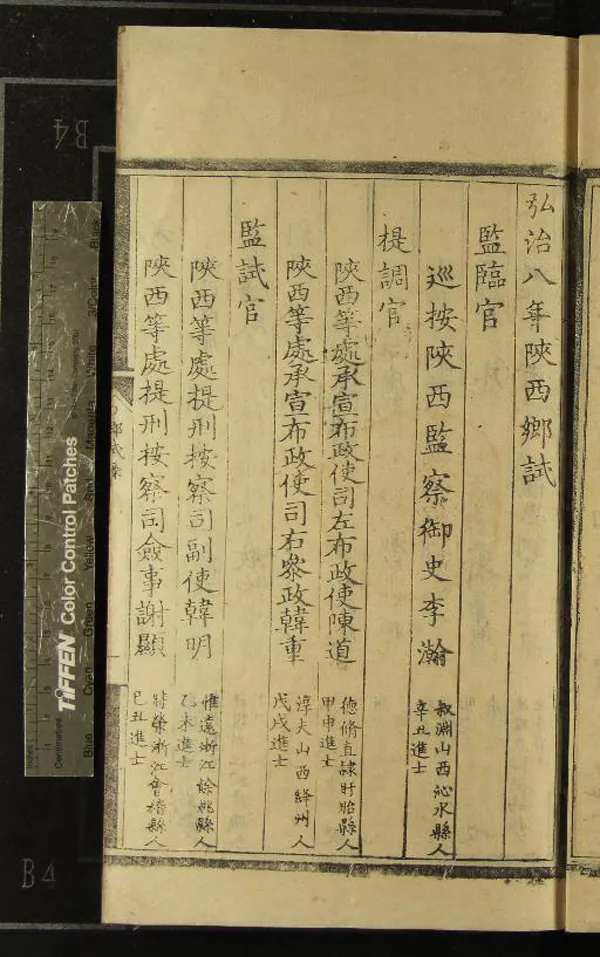 弘治八年陝西鄉試
監臨官
巡按陝西監察御史李瀚
叔淵山西沁水縣人
辛丑進士
提調官
陝西等處承宣布政使司左布政使陳道
德脩直隸盱眙縣人
甲申進士
陝西等處承宣布政使司右叅政韓重
淳夫山西絳州人
戊戌進士
監試官
陝西等處提刑按察司副使韓明
惟遠浙江餘姚縣人
乙未進士
陝西等處提刑按察司僉事謝顯
浙江會稽縣人
己丑進士
TIFFEN Color Control Patches
Blue
Cyan
Green
Yellow
Red
Magenta
White
3/Color
Black
Inches
Centimetres
B4
B4